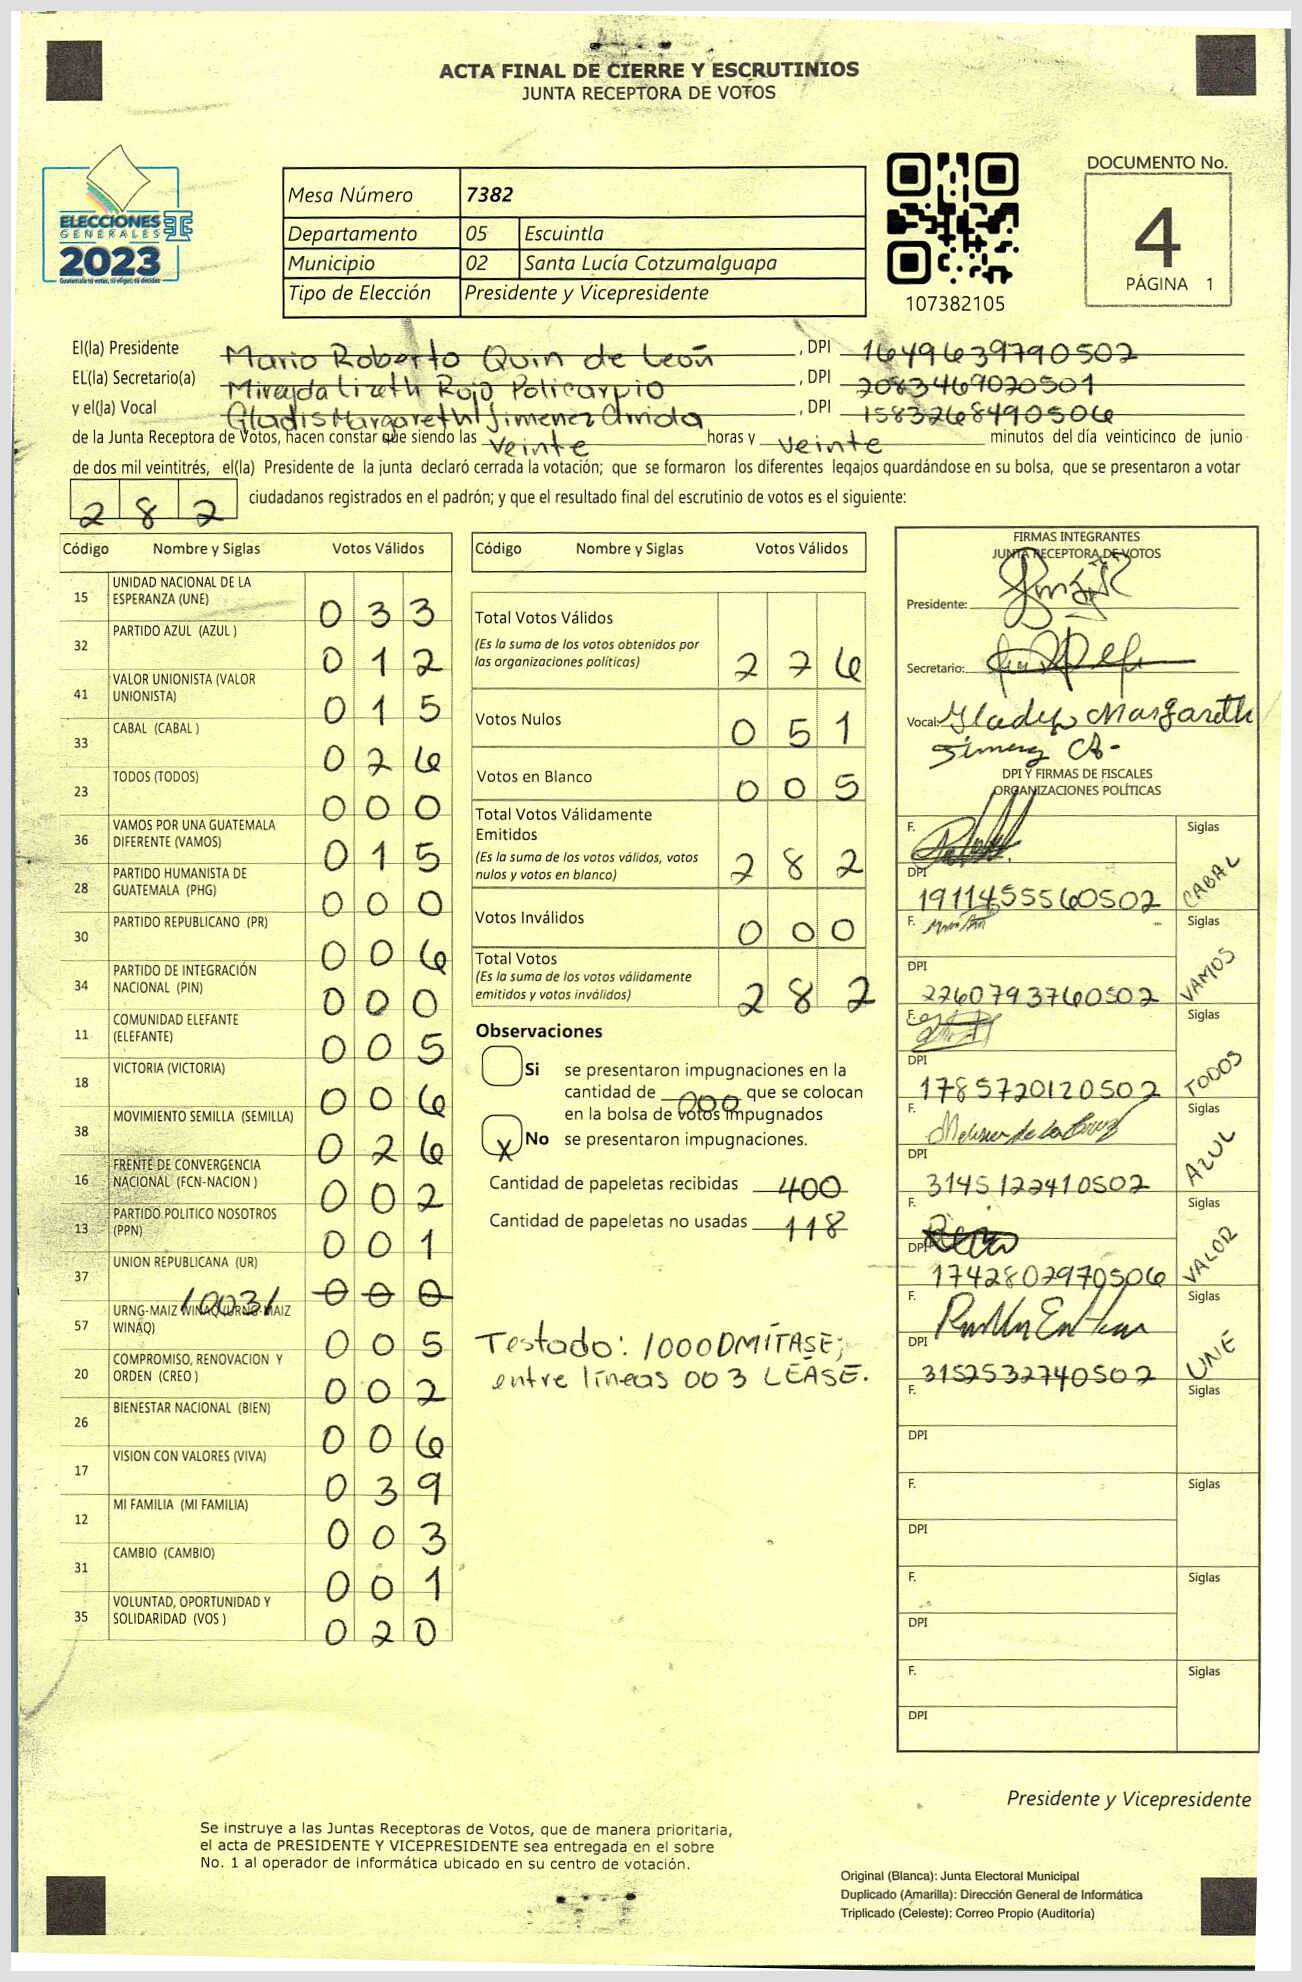 ACTA FINAL DE CIERRE Y ESCRUTINIOS
JUNTA RECEPTORA DE VOTOS
ELECCIONES
GENERALES
2023
Guatemala tu votas, tu eliges, tu decides
Mesa Número 7382
Departamento 05 Escuintla
Municipio 02 Santa Lucía Cotzumalguapa
Tipo de Elección Presidente y Vicepresidente
107382105
DOCUMENTO No.
4
PÁGINA 1
El(la) Presidente Mario Roberto Quin de León, DPI 1649639790502
EL(la) Secretario(a) Mirayda Lizeth Rojo Policarpio, DPI 2083469020501
y el(la) Vocal Gladis Margareth Jimenez, DPI 1583268490506
de la Junta Receptora de Votos, hacen constar que siendo las veinte horas y veinte minutos del día veinticinco de junio
de dos mil veintitrés, el(la) Presidente de la junta declaró cerrada la votación; que se formaron los diferentes legajos guardándose en su bolsa, que se presentaron a votar
282 ciudadanos registrados en el padrón; y que el resultado final del escrutinio de votos es el siguiente:
Código Nombre y Siglas Votos Válidos
15 UNIDAD NACIONAL DE LA ESPERANZA (UNE) 033
32 PARTIDO AZUL (AZUL ) 012
41 VALOR UNIONISTA (VALOR UNIONISTA) 015
33 CABAL (CABAL ) 026
23 TODOS (TODOS) 000
36 VAMOS POR UNA GUATEMALA DIFERENTE (VAMOS) 015
28 PARTIDO HUMANISTA DE GUATEMALA (PHG) 000
30 PARTIDO REPUBLICANO (PR) 006
34 PARTIDO DE INTEGRACIÓN NACIONAL (PIN) 000
11 COMUNIDAD ELEFANTE (ELEFANTE) 005
18 VICTORIA (VICTORIA) 006
38 MOVIMIENTO SEMILLA (SEMILLA) 026
16 FRENTE DE CONVERGENCIA NACIONAL (FCN-NACION ) 002
13 PARTIDO POLITICO NOSOTROS (PPN) 001
37 UNION REPUBLICANA (UR) 000
/003/
57 URNG-MAIZ WINAQ (URNG-MAIZ WINAQ) 005
20 COMPROMISO, RENOVACION Y ORDEN (CREO ) 002
26 BIENESTAR NACIONAL (BIEN) 006
17 VISION CON VALORES (VIVA) 039
12 MI FAMILIA (MI FAMILIA) 003
31 CAMBIO (CAMBIO) 001
35 VOLUNTAD, OPORTUNIDAD Y SOLIDARIDAD (VOS ) 020
Código Nombre y Siglas Votos Válidos
Total Votos Válidos 226
(Es la suma de los votos obtenidos por
las organizaciones políticas)
Votos Nulos 051
Votos en Blanco 005
Total Votos Válidamente Emitidos 282
(Es la suma de los votos válidos, votos
nulos y votos en blanco)
Votos Inválidos 000
Total Votos 282
(Es la suma de los votos válidamente
emitidos y votos inválidos)
Observaciones
Si se presentaron impugnaciones en la
cantidad de 000 que se colocan
en la bolsa de votos impugnados
X No se presentaron impugnaciones.
Cantidad de papeletas recibidas 400
Cantidad de papeletas no usadas 118
Testado: /000 OMÍTASE;
entre líneas 003 LÉASE.
FIRMAS INTEGRANTES
JUNTA RECEPTORA DE VOTOS
Presidente:
Secretario:
Vocal: Gladys Margareth
DPI Y FIRMAS DE FISCALES
ORGANIZACIONES POLÍTICAS
F. Siglas
DPI 1911455560502 CABAL
F. Siglas
DPI 2260793760502 VAMOS
F. Siglas
DPI 1785720120502 TODOS
F. Siglas
DPI 3145122410502 AZUL
F. Siglas
DPI 1742802970506 VALOR
F. Siglas
DPI 3152532740502 UNE
F. Siglas
DPI
F. Siglas
DPI
F. Siglas
DPI
F. Siglas
DPI
Presidente y Vicepresidente
Se instruye a las Juntas Receptoras de Votos, que de manera prioritaria,
el acta de PRESIDENTE Y VICEPRESIDENTE sea entregada en el sobre
No. 1 al operador de informática ubicado en su centro de votación.
Original (Blanca): Junta Electoral Municipal
Duplicado (Amarilla): Dirección General de Informática
Triplicado (Celeste): Correo Propio (Auditoría)